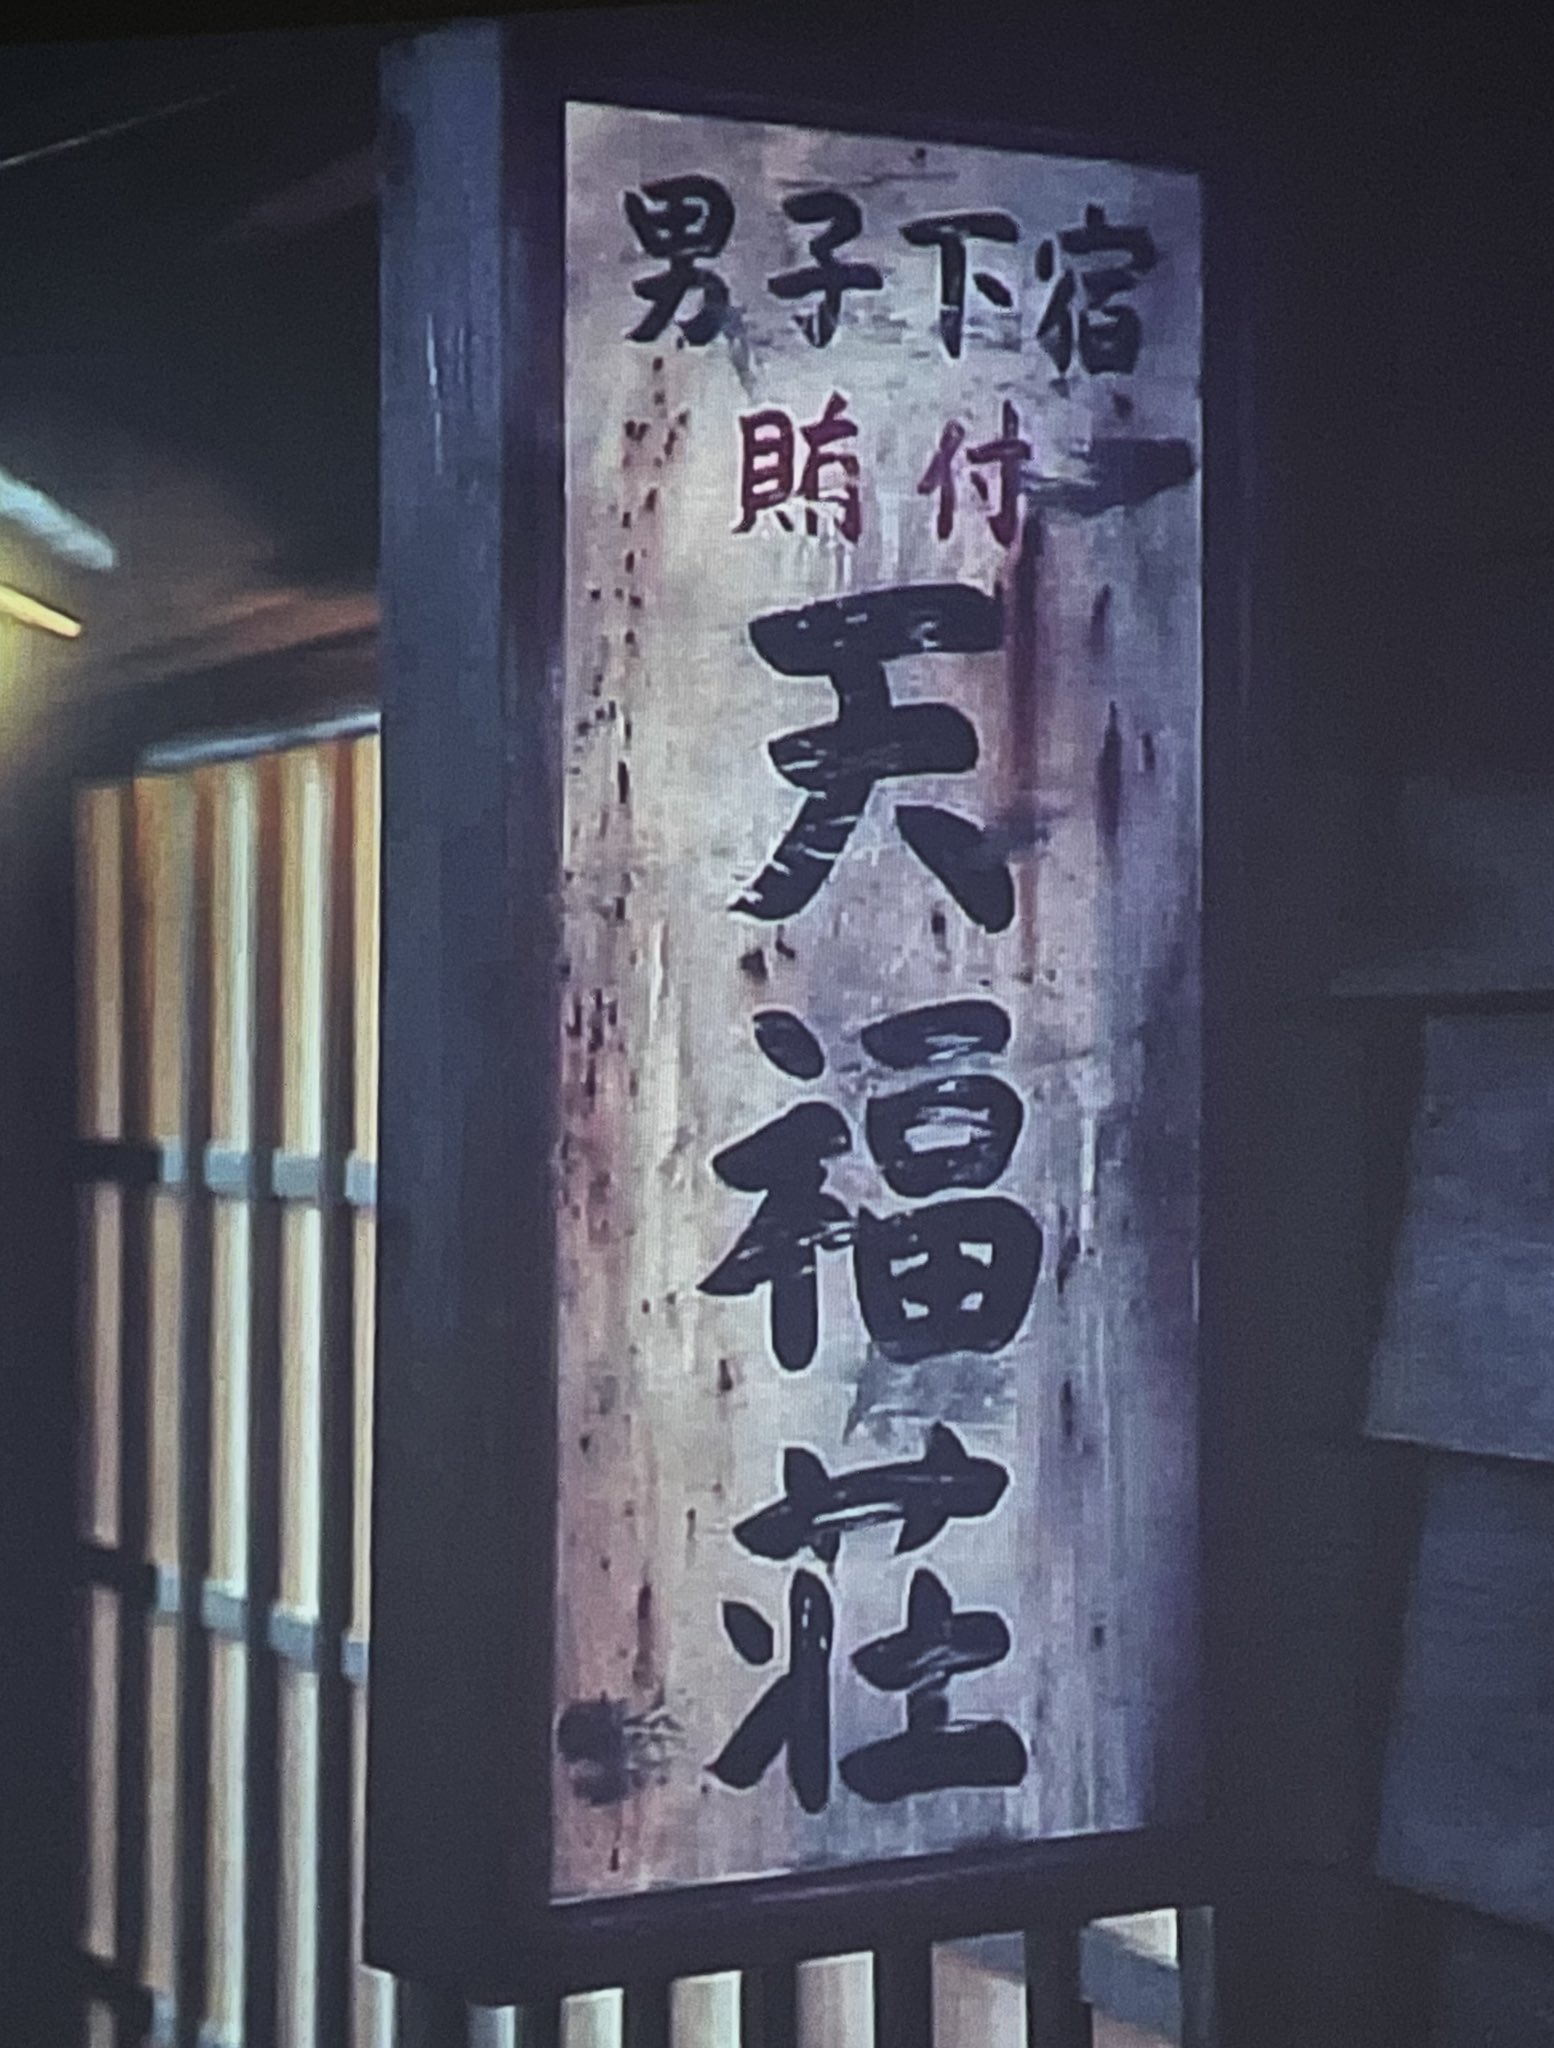 男子下宿
賄付
天福荘